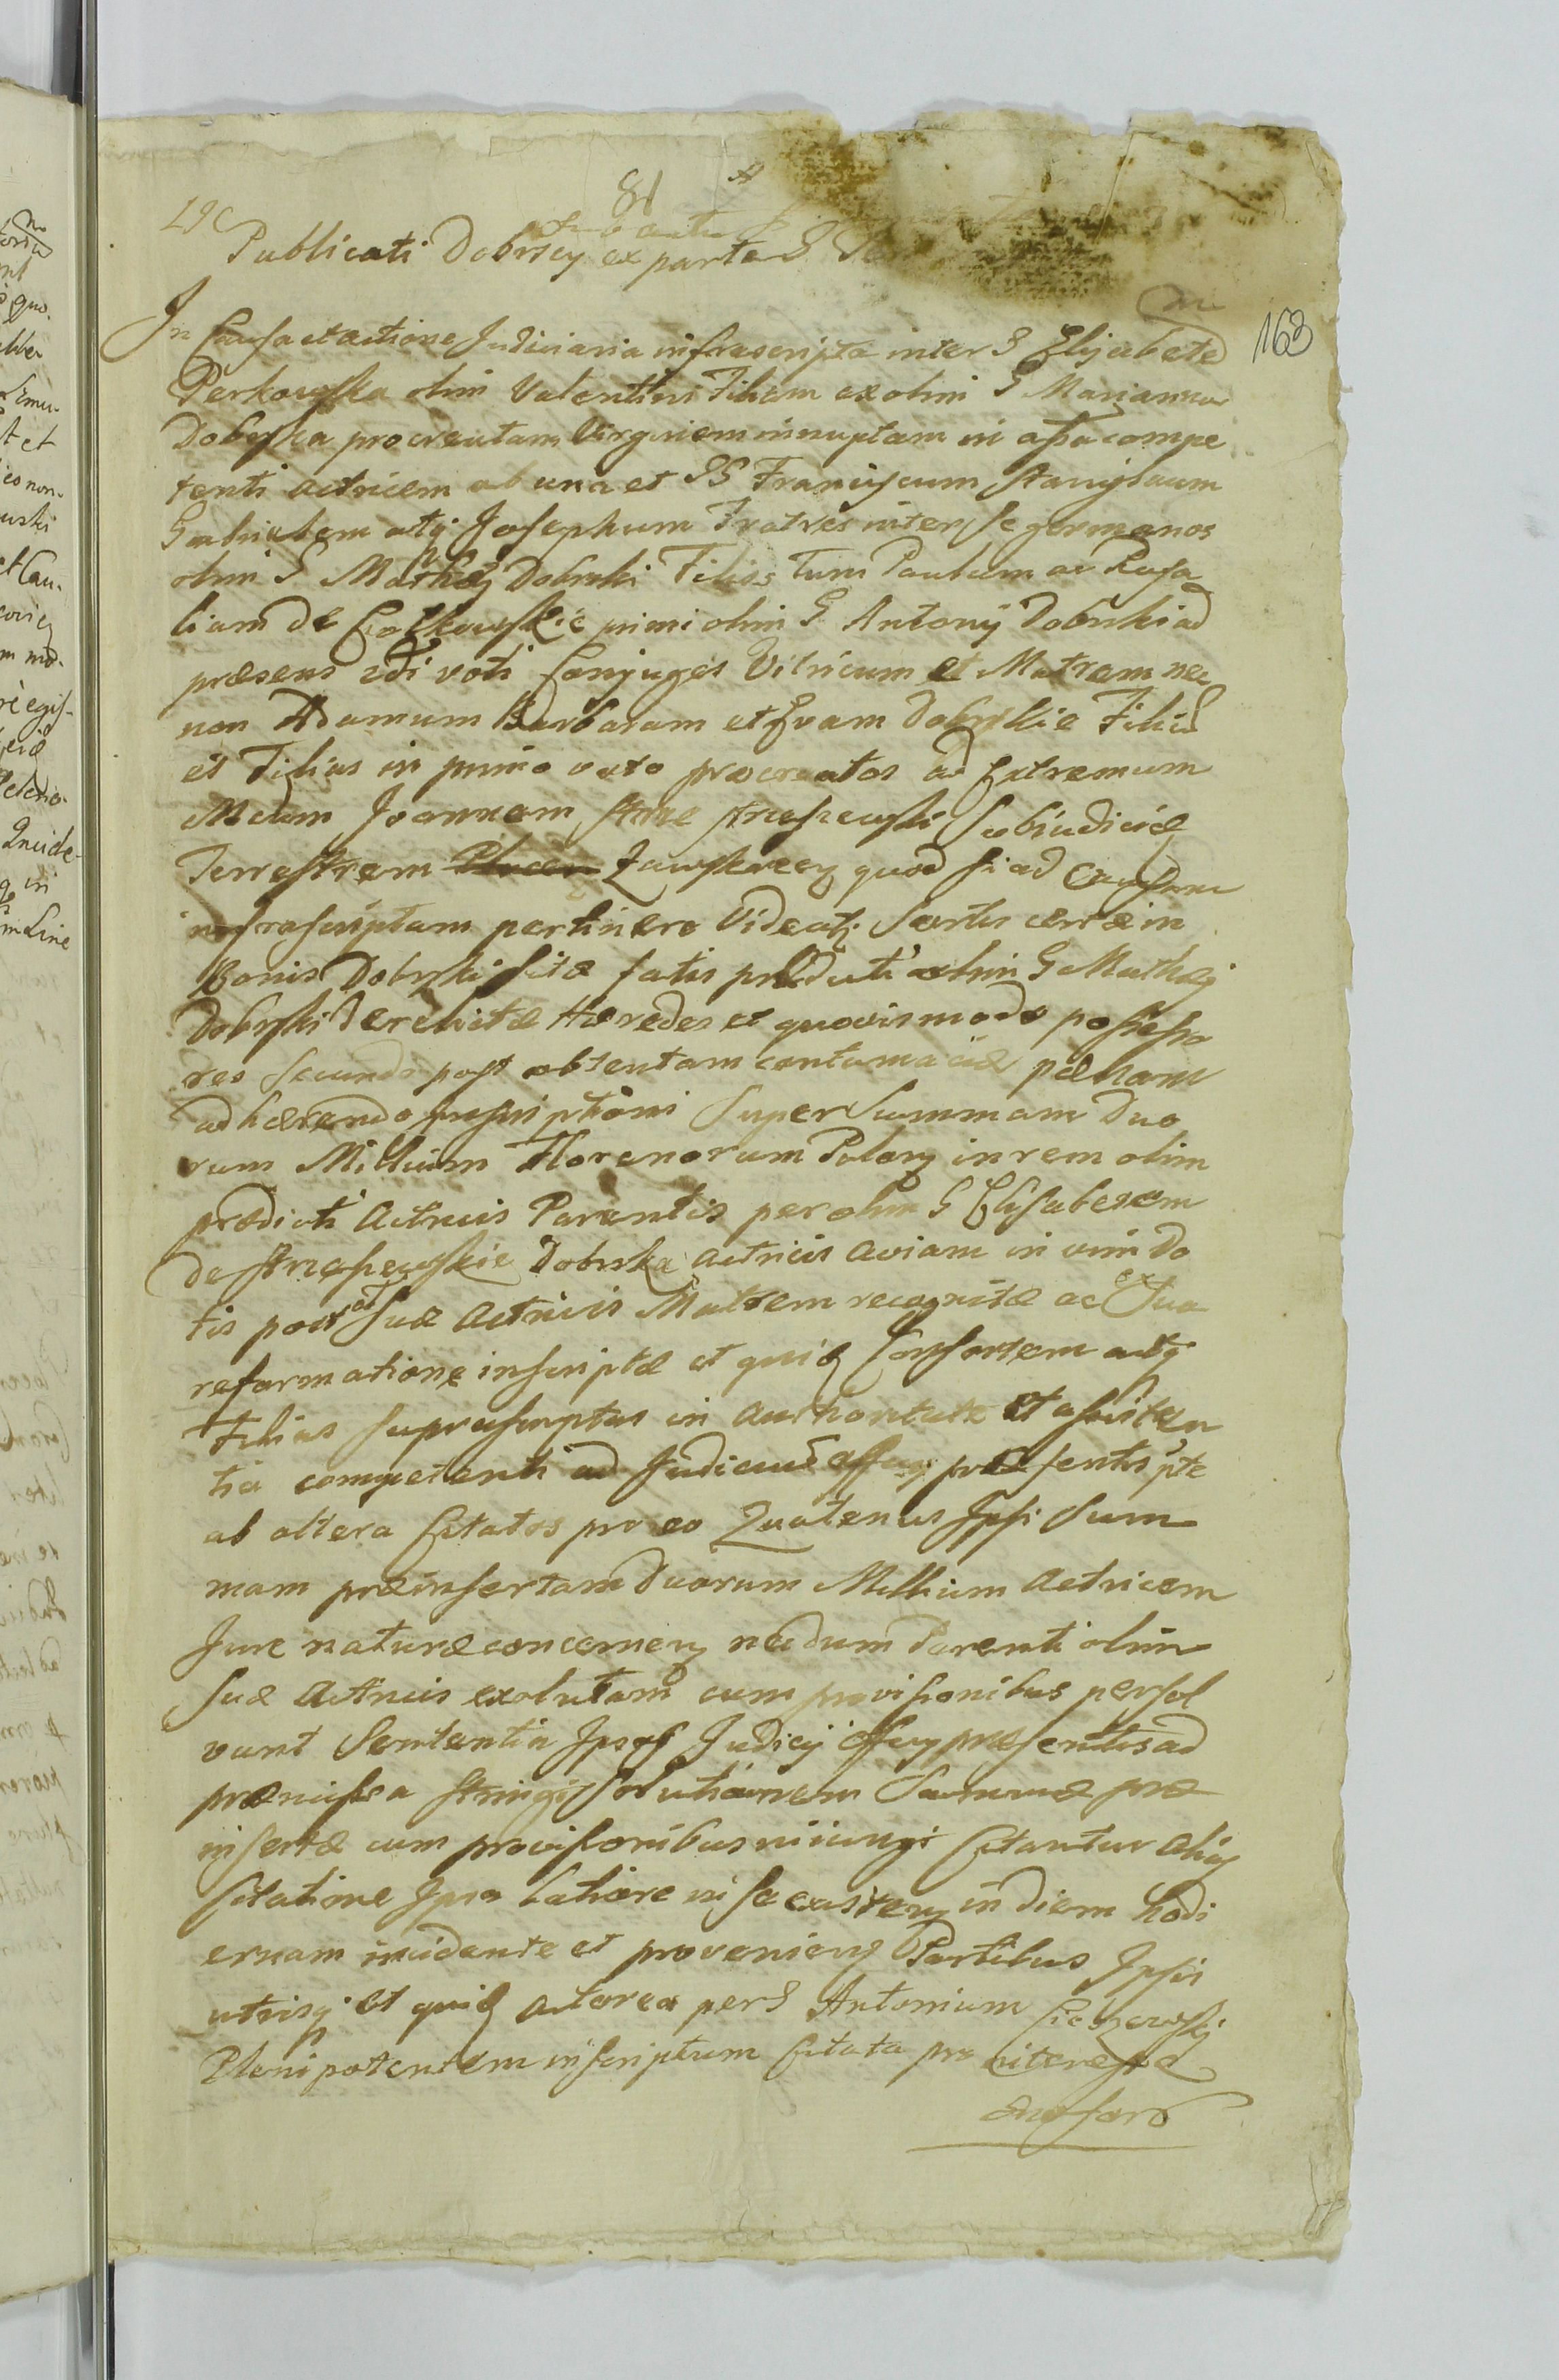 81
163
Publicati Dobrscy ex parte G
In Causa et actione Judiciaria infrascripta inter G Elisabetē
Perkowska olim Valentini Filiam ex olim G Marianna
Dobrska procreatam Virginem innuptam in assa compe
tenti actricem ab una et GG Franciscum Stanislaum
Gabrielem atq Josephum Fratres inter se germanos
olim G Mathæj Dobrski Filios Tum Paulum ac Rosa
liam de primi olim G Antonÿ Dobrski ad
præsens 2di voti Conjuges Vitricum et Matrem nec
non Adamum Barbaram et Evam Dobrskie Filiū
et Filias in primo voto procreatos ad Extremum
Mdum Joannem Subiudicē
Terrestrem Zawskreñ quod si ad Causam
infrascriptam pertinere Videatz Sortis certæ in
bonis Dobrski sitæ fatis præduti olim G Mathæj
Dobrski derelictæ Hæredes et quovismodo possesso
res Secundo post obtentam contumaciæ pænam
adhærendo inscriptioni Super Summam Duo
rum Millium Florenorum Polony in rem olim
prædicti Actricis Parentis per olim G Elisabetem
de Dobrska actricis Aviam in vim Do
tis post et Suæ Actricis Matrem recognitæ ac ex Sua
reformatione inscriptæ et quidz Consortem atq
Filias suprascriptas in Authoritate et assisten
tia competenti ad Judicium præsentis pte
ab altera Citatos pro eo Quatenus Ipsi Sum
mam præinsertam Duorum Millium Actricem
Jure naturæ concerneñ necdum Parenti olim
Suæ Actricis exolutam cum provisionibus persol
vant Sententia Ipsos Judicij præsentis ad
præmissa stringi Solutionem Summæ præ
insertæ cum provisionibus niiungi Citantur Aliaz
Citatione Ipsa latiore in se existeñ in diem hodi
ernam incidente et provenieñ Partibus Ipsis
utrisq et quidz Actorea per G Antonium
Plenipotentem inscriptum Citata pro interesse